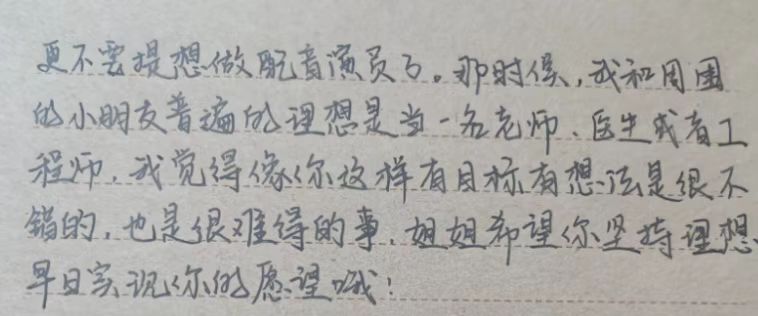 更不要提想做配音演员了。那时候，我和周围
的小朋友普遍的理想是当一名老师、医生或者工
程师，我觉得像你这样有目标有想法是很不
错的，也是很难得的事，姐姐希望你坚持理想，
早日实现你的愿望哦！